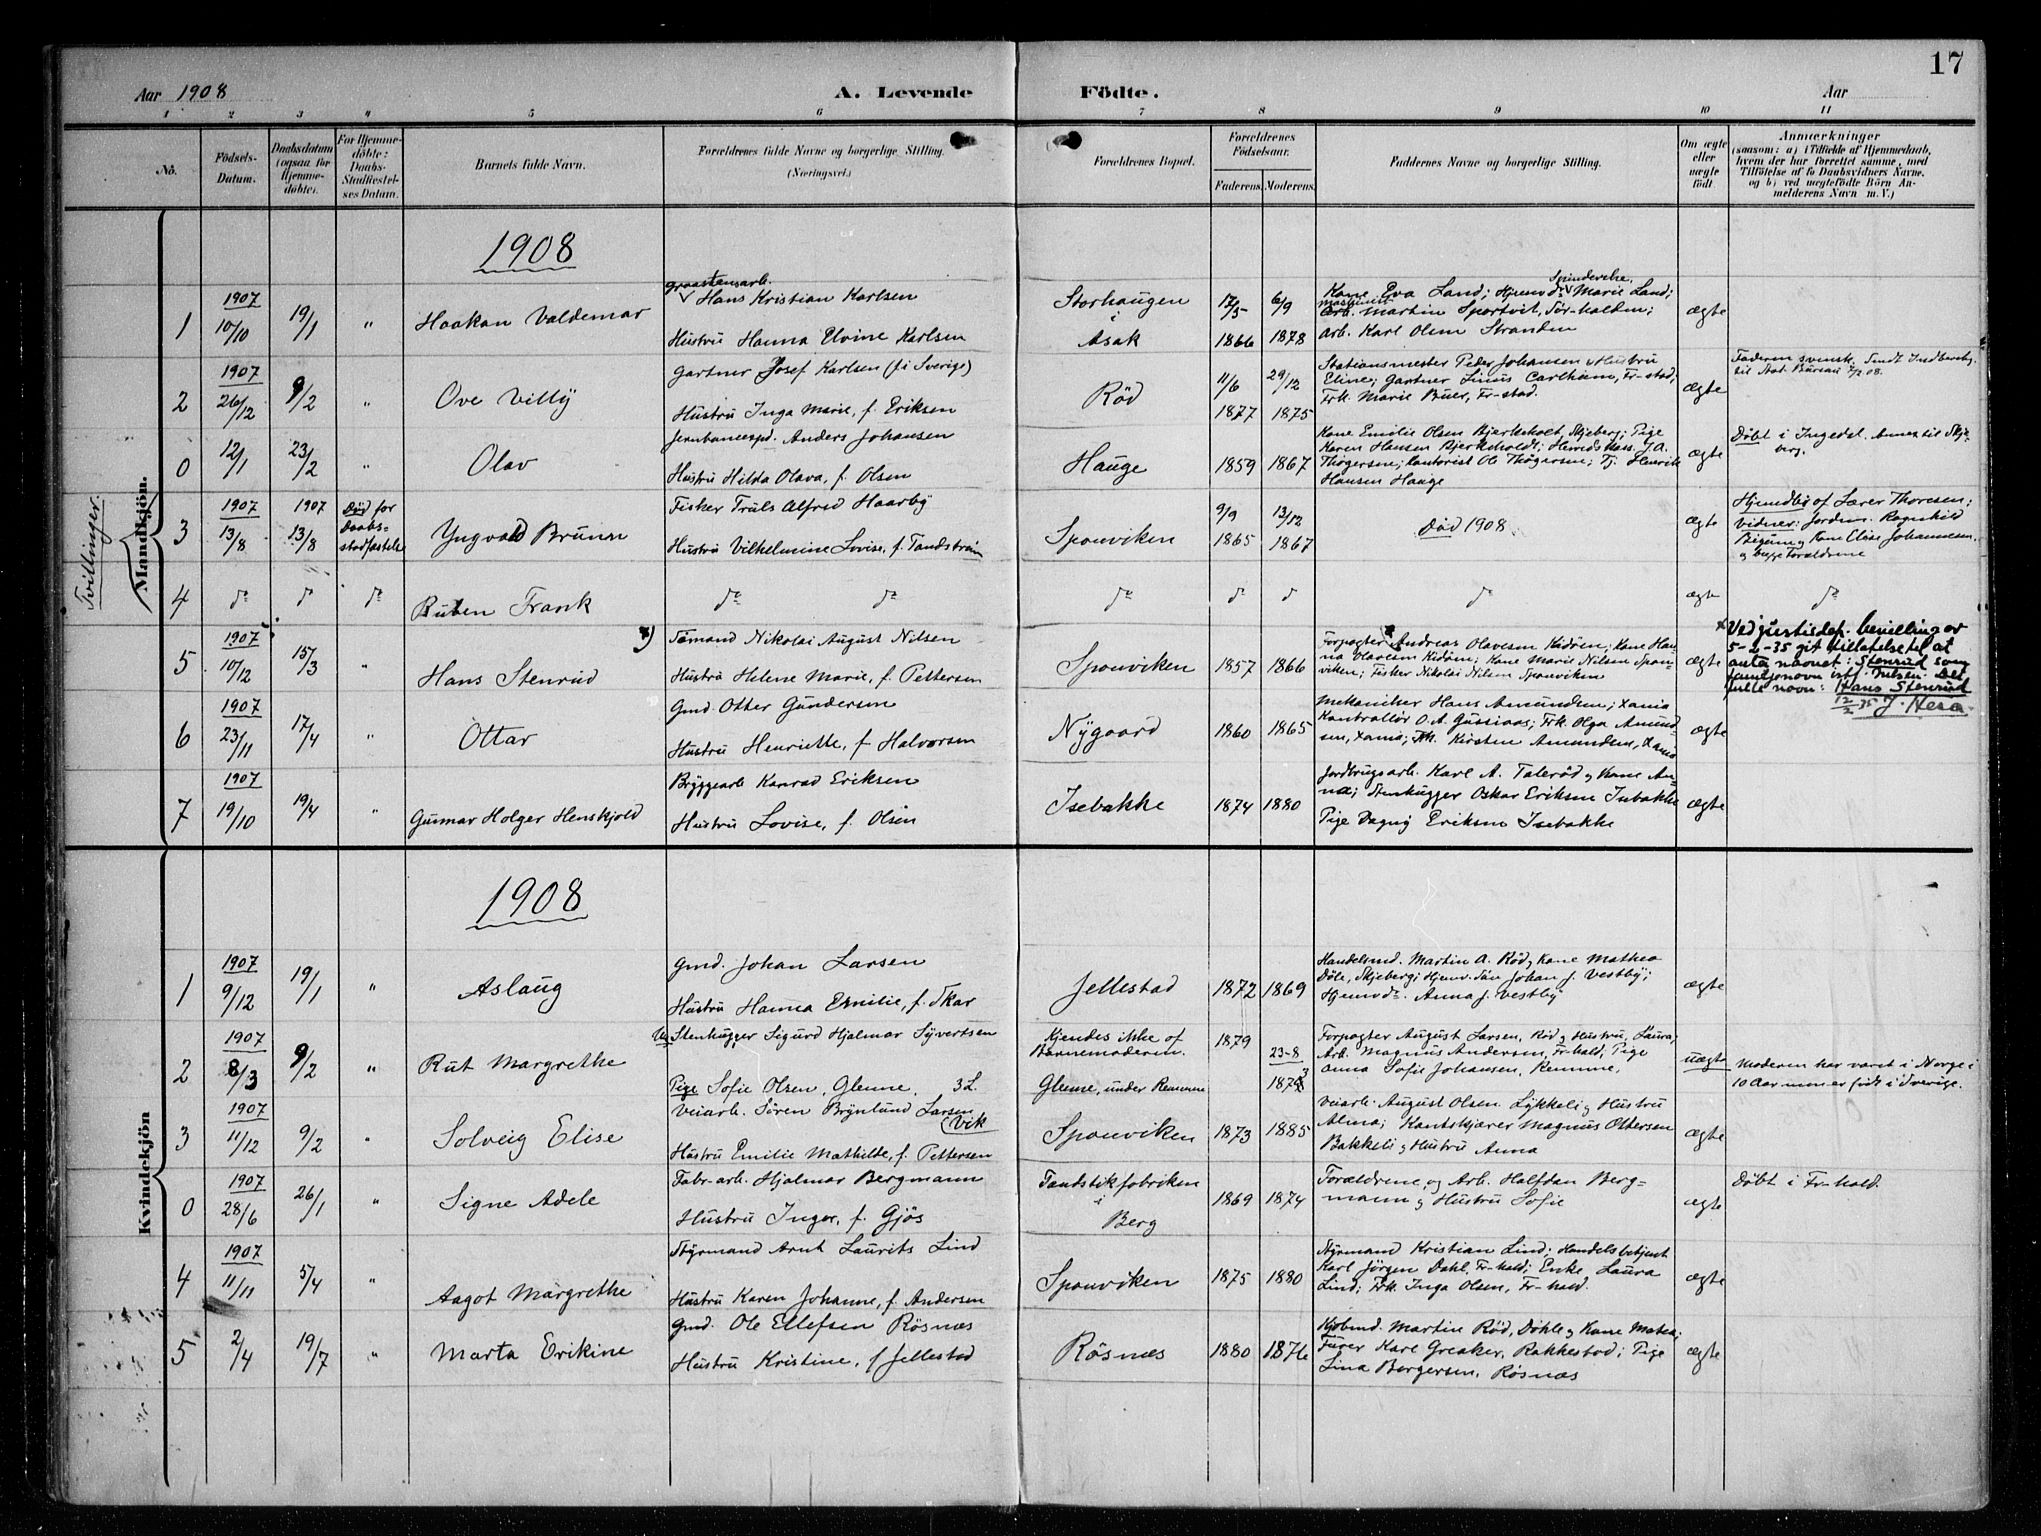 17
Aar 1908 A. Levende Födte. Aar
1 2 3 4 5 6 7 8 9 10 11
No.
Födsels-Datum.
Daabsdatum (ogsaa for Hjemmedöbte).
For Hjemmedöbte: Daabs-Stadfæstelses Datum.
Barnets fulde Navn.
Forældrenes fulde Navne og borgerlige Stilling.
(Næringsvei.)
Forældrenes Bopæl.
Forældrenes Fødselsaar.
Faderens. Moderens.
Faddernes Navne og borgerlige Stilling.
Om ægte eller uægte födt
Anmærkninger
(saasom: a) i Tilfælde af Hjemmedaab, hvem der har forrettet samme, med Tilföielse af to Daabsvidners Navne, og b) ved uægtefödte Börn Anmelderens Navn m. V.)
Mandkjön.
Tvillinger.
1908
1 1907 10/10 19/1 " Haakon Valdemar
graastensarb. Hans Kristian Karlsen
Hustru Hanna Elvine Karlsen
Storhaugen i Asak
17/5 1866 6/9 1878
Kone Eva Land; Hjemv. d. Marie Land;
arb. Martin Sportvit, Tör-halden;
arb. Karl Olsen Stranden
ægte
2 1907 26/12 9/2 " Ove Villy
Gartner Josef Karlsen (fi Sverige)
Hustru Inga Marie, f. Eriksen
Röd
11/6 1877 29/12 1875
Stationsmester Peder Johansen Hustru
Eline; Gartner Linus Carlheim, Fr-stad;
Frk. Marie Buer, Fr-stad.
ægte
Faderen svensk. Sendt Indberetg.
til Stat. Büreau 7/2 08.
0 12/1 23/2 " Olav
Jernbaneexpd. Anders Johansen
Hustru Hilda Olava, f. Olsen
Hauge
1859 1867
Kone Emilie Olsen Bjerkeholt, Skjeberg; Pige
Karen Hansen Bjerkeholdt; Herredskass. J. A.
Thögersen; Kontorist Ole Thögersen; Tj. Henrik
Hansen Hauge
ægte
Döbt i Ingedal. Annex til Skjeberg.
3 1907 13/8 1907 13/8 Död for Daabs-stadfæstele
Yngvald Brunn
Fisker Truls Alfred Haarby
Hustru Vilhelmine Lovise, f. Tandström
Sponviken
9/9 1865 13/12 1867
Död 1908
ægte
Hjemdöbt af Lærer Thoresen;
Vidner: Jordm. Ragnhild
og Kone Elise Johannesen,
og begge Forældrene
4 do do do Ruben Frank do do do do do do ægte do
5 1907 10/12 15/3 " Hans Stenrud x)
Tömand Nikolai August Nilsen
Hustru Helene Marie, f. Pettersen
Sponviken
1857 1866
Forpagter Andreas Olavesen Kidöen; Kone Hanna Olavesen Kidöen; Kone Marie Nilsen Sponviken; Fisker Nikolai Nilsen Sponviken
ægte
x Ved justisdep. bevilling av
5-2-35 git tillatelse til at
anta navnet: Stenrud som
familjenavn istf. Nilsen. Det
fulle navn: Hans Stenrud
12/2 35 J. Hesa.
6 1907 23/11 17/4 " Ottar
Gmd. Otter Gundersen
Hustru Henriette, f. Halvorsen
Nygaard
1860 1865
Mekaniker Hans Amundsen; Xania
Kontrollör O. A. Gusiaas; Frk. Olga Amundsen, Xania; Frk. Kirsten Amundsen, Xania
ægte
7 1907 19/10 19/4 " Gunnar Holger Henskjold
Bryggearb. Konrad Eriksen
Hustru Lovise, f. Olsen
Isebakke
1874 1880
Jordbrugsarb. Karl A. Toleröd og Kone Anna; Stenhugger Oskar Eriksen Isebakke
Pige Dagny Eriksen Isebakke
ægte
Kvindekjön
1908
1 1907 9/12 19/1 " Aslaug
Gmd. Johan Larsen
Hustru Hanna Emilie, f. Skar
Jellestad
1872 1869
Handelsmd. Martin A. Röd og Kone Mathea
Döle, Skjeberg; Hjemv. Sön Johan J. Vestby;
Hjemv. D. Anna J. Vestby
ægte
2 1907 8/3 9/2 " Rut Margrethe
Ug. Stenhugger Sigurd Hjalmar Syvertsen
Pige Sofie Olsen, Glenne, 3 L.
Kjendes ikke af Barnemoderen.
Glenne, under Remmen
1879 23-8 1873
Forpagter August Larsen, Röd og Hustru, Laura,
Arb. Magnus Andersen, Fr-hald; Pige
Anna Sofie Johansen, Remme,
uægte
Moderen har været i Norge i
10 Aar men er födt i Sverige.
3 1907 11/12 9/2 " Solveig Elise
Veiarb. Sören Brynlund Larsen (Vik
Hustru Emilie Mathilde, f. Pettersen
Sponviken
1873 1885
Veiarb. August Olsen Lykkeli og Hustru
Alma; Kantskjærer Magnus Ottersen
Bakkeli og Hustru Anna
ægte
0 1907 28/6 26/1 " Signe Adele
Fabr-arb. Hjalmar Bergmann
Hustru Inger, f. Gjös
Tandstikfabriken i Berg
1869 1874
Forældrene, og Arb. Halfdan Bergmann og Hustru Sofie
ægte
Döbt i Fr-hald.
4 1907 11/11 5/4 " Aagot Margrethe
Styrmand Arnt Laurits Lind
Hustru Karen Johanne, f. Andersen
Sponviken
1875 1880
Styrmand Kristian Lind; Handelsbetjent
Karl Jörgen Dahl, Fr-hald; Enke Laura
Lind; Frk. Inga Olsen, Fr-hald.
ægte
5 2/4 19/7 " Marta Erikine
Gmd. Ole Ellefsen Rösnæs
Hustru Kristine, f Jellestad
Rösnæs
1880 1876
Kjöbmd. Martin Röd, Döhle og Kone Matea;
Furer Karl Greaker, Rakkestad; Pige
Lina Borgersen, Rösnæs
ægte